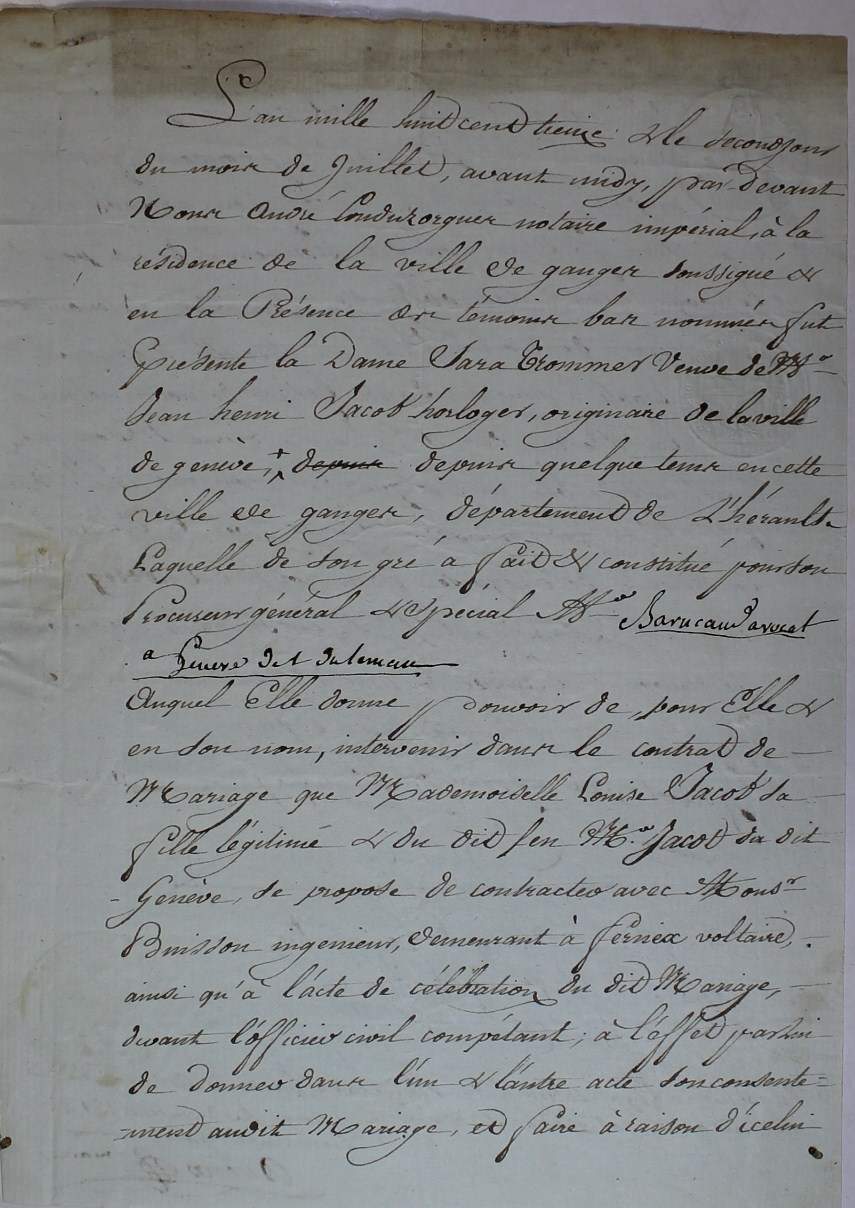 L'an mille huit cent treize & le second jour
du mois de Juillet, avant midy, par devant
Nous André Conduzorgues notaire impérial, à la
résidence de la ville de ganges soussigné &
en la Présence des témoins bas nommés fut
Présente la Dame Sara Trommer Veuve de Mr
Jean henri Jacob horloger, originaire de la ville
de genève, + depuis depuis quelque tems en cette
ville de ganges, département de L'hérault.
Laquelle de son gré a fait & constitué pour son
Procureur général & spécial Mr Barucaud avocat
a Geneve Det du leman
Auquel Elle donne pouvoir de, pour Elle &
en son nom, intervenir dans le contrat de
Mariage que Mademoiselle Louise Jacob sa
fille légitime & du dit feu Mr Jacob du dit
Genève, se propose de contracter avec Monsr
Buisson ingenieur, demeurant à fernex voltaire,
ainsi qu'à l'acte de célébration du dit Mariage,
devant l'officier civil compétant; à l'effet par lui
de donner dans l'un & l'autre acte son consente=
=ment audit Mariage, et faire à raison d'icelui